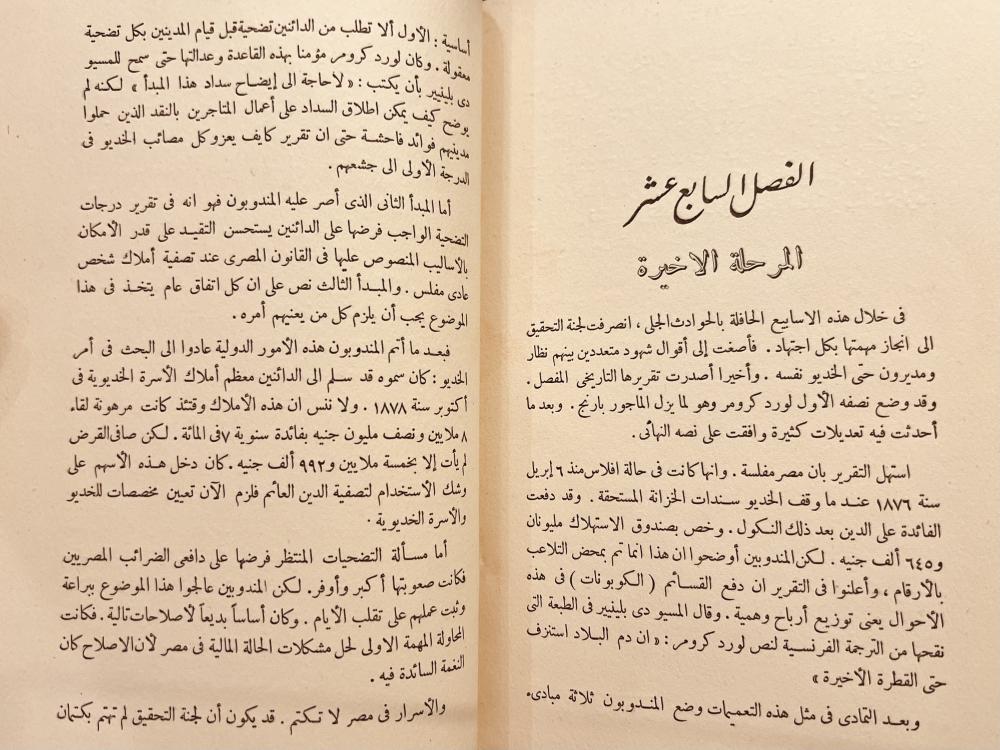 الفصل السابع عشر
المرحلة الاخيرة
فى خلال هذه الاسابيع الحافلة بالحوادث الجلى ، انصرفت لجنة التحقيق
الى انجاز مهمتها بكل اجتهاد . فأصغت إلى أقوال شهود متعددين بينهم نظار
ومديرون حتى الخديو نفسه . وأخيرا أصدرت تقريرها التاريخى المفصل .
وقد وضع نصفه الأول لورد كرومر وهو لما يزل الماجور بارنج . وبعد ما
أحدثت فيه تعديلات كثيرة وافقت على نصه النهائى .
استهل التقرير بان مصر مفلسة . وانها كانت فى حالة افلاس منذ ٦ إبريل
سنة ١٨٧٦ عند ما وقف الخديو سندات الخزانة المستحقة . وقد دفعت
الفائدة على الدين بعد ذلك النكول . وخص بصندوق الاستهلاك مليونان
و٦٤٥ ألف جنيه . لكن المندوبين أوضحوا ان هذا انما تم بمحض التلاعب
بالأرقام ، وأعلنوا فى التقرير ان دفع القسائم ( الكوبونات ) فى هذه
الأحوال يعنى توزيع أرباح وهمية . وقال المسيو دى بلينيير فى الطبعة التى
نقحها من الترجمة الفرنسية لنص لورد كرومر : « ان دم البلاد استنزف
حتى القطرة الأخيرة »
وبعد التمادى فى مثل هذه التعميات وضع المندوبون ثلاثة مبادىء
أساسية : الأول ألا تطلب من الدائنين تضحية قبل قيام المدينين بكل تضحية
معقولة . وكان لورد كرومر مؤمنا بهذه القاعدة وعدالتها حتى سمح للمسيو
دى بلينيير بأن يكتب : « لا حاجة الى إيضاح سداد هذا المبدأ » لكنه لم
يوضح كيف يمكن اطلاق السداد على أعمال المتاجرين بالنقد الذين حملوا
مدينيهم فوائد فاحشة حتى ان تقرير كايف يعزو كل مصائب الخديو فى
الدرجة الأولى الى جشعهم .
أما المبدأ الثانى الذى أصر عليه المندوبون فهو انه فى تقرير درجات
التضحية الواجب فرضها على الدائنين يستحسن التقيد على قدر الأمكان
بالأساليب المنصوص عليها فى القانون المصرى عند تصفية أملاك شخص
عادى مفلس . والمبدأ الثالث نص على ان كل اتفاق عام يتخذ فى هذا
الموضوع يجب أن يلزم كل من يعنيهم أمره .
فبعد ما أتم المندوبون هذه الأمور الدولية عادوا الى البحث فى أمر
الخديو : كان سموه قد سلم الى الدائنين معظم أملاك الأسرة الخديوية فى
أكتوبر سنة ١٨٧٨ . ولا ننس ان هذه الأملاك وقتئذ كانت مرهونة لقاء
٨ ملايين ونصف مليون جنيه بفائدة سنوية ٧ فى المائة . لكن صافى القرض
لم يأت إلا بخمسة ملايين و٩٩٢ ألف جنيه . كان دخل هذه الأسهم على
وشك الاستخدام لتصفية الدين العائم فلزم الآن تعيين مخصصات للخديو
والأسرة الخديوية .
أما مسألة التضحيات المنتظر فرضها على دافعى الضرائب المصريين
فكانت صعوبتها أكبر وأوفر . لكن المندوبين عالجوا هذا الموضوع ببراعة
وثبت عملهم على تقلب الأيام . وكان أساساً بديعاً لأصلاحات تالية . فكانت
المحاولة المهمة الاولى لحل مشكلات الحالة المالية فى مصر لأن الاصلاح كان
النغمة السائدة فيه .
والأسرار فى مصر لا تكتم . قد يكون أن لجنة التحقيق لم تهتم بكتمان